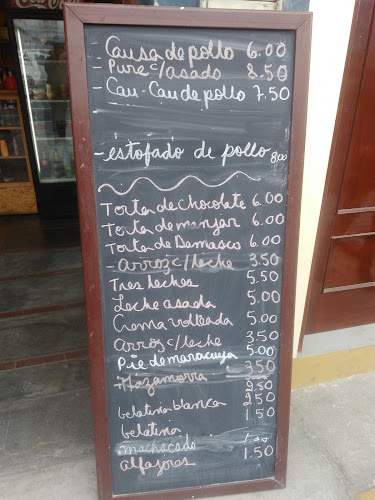 - Causa de pollo 6.00
- Pure c/asado 8.50
- Cau-Cau de pollo 7.50
- estofado de pollo 8.00
Torta de chocolate 6.00
Torta de manjar 6.00
Torta de Damasco 6.00
- arroz c/leche 3.50
Tres leches 5.50
Leche asada 5.00
Crema volteada 5.00
arroz c/leche 3.50
Pie de maracuya 5.00
Mazamorra 3.50
2.50
gelatina blanca 2.50
gelatina 1.50
machacado
alfajores 1.50